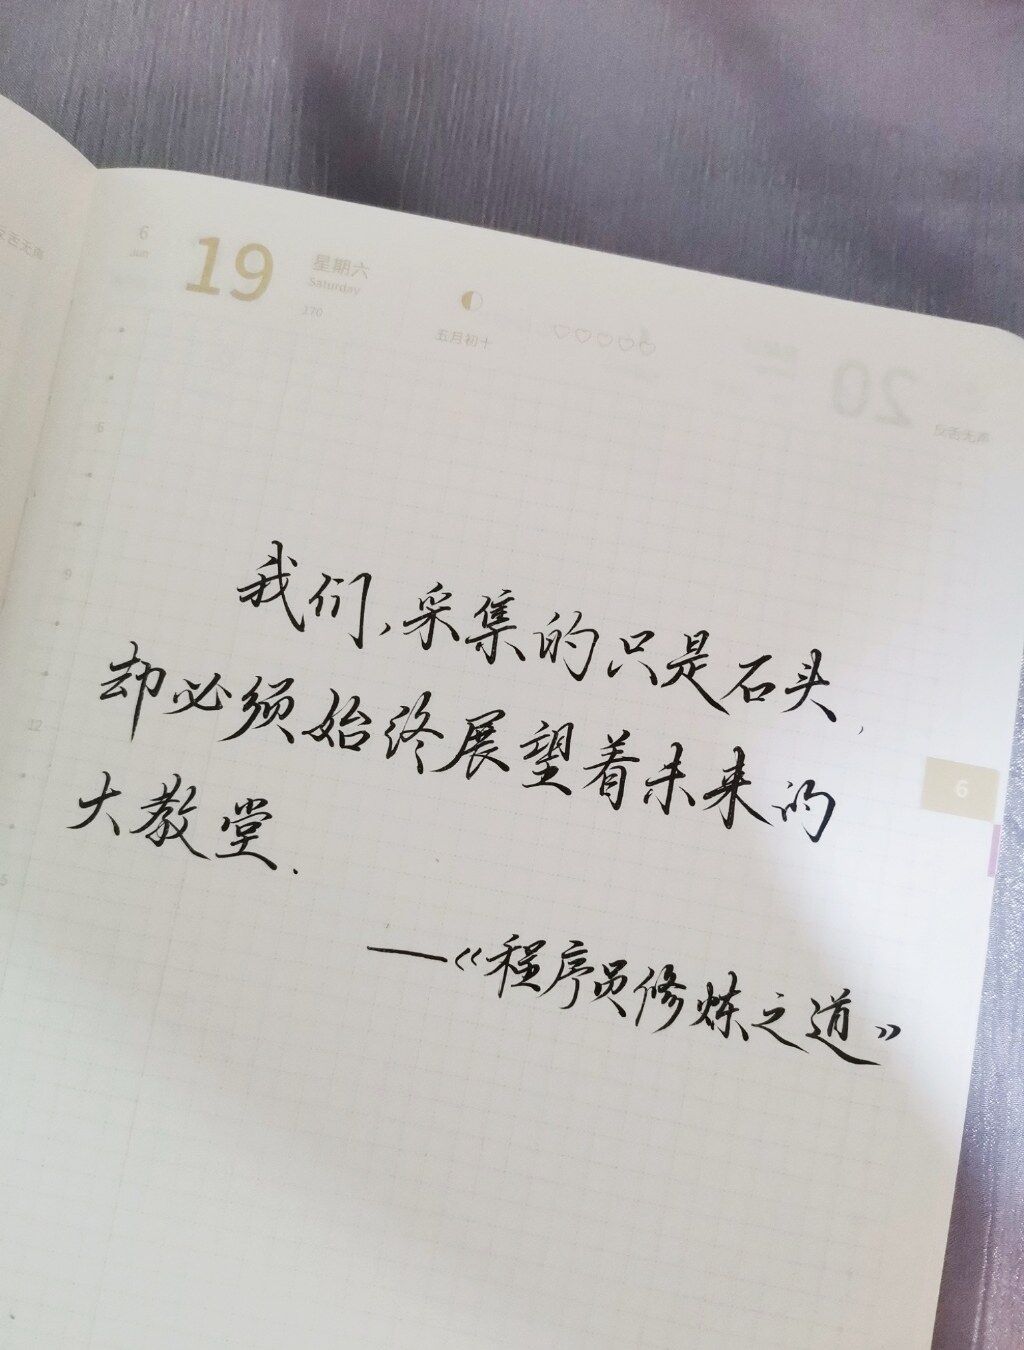 反舌无声
6
Jun
19
星期六
Saturday
170
五月初十
20
反舌无声
6
9
12
我们,采集的只是石头,
却必须始终展望着未来的
大教堂.
6
—《程序员修炼之道》